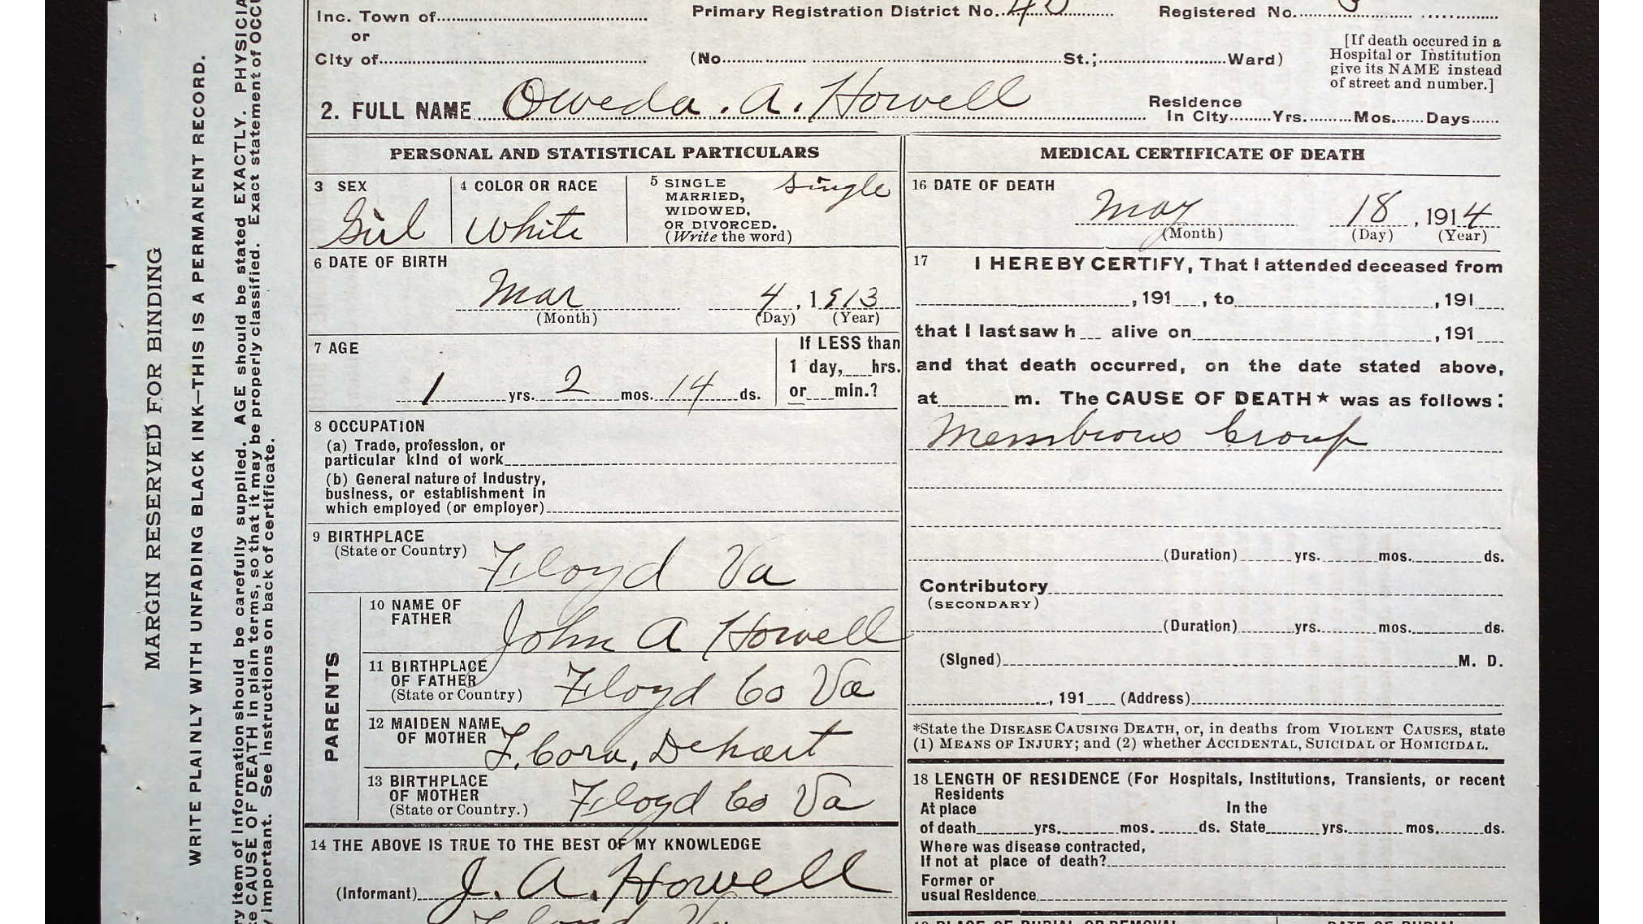 Inc. Town of
Primary Registration District No.
Registered No.
or
City of
(No. St.; Ward)
[If death occured in a
Hospital or Institution
give its NAME instead
of street and number.]
2. FULL NAME Oweda. A. Howell
Residence
In City Yrs. Mos. Days
PERSONAL AND STATISTICAL PARTICULARS
3 SEX
Girl
4 COLOR OR RACE
White
5 SINGLE
MARRIED,
WIDOWED,
OR DIVORCED.
(Write the word)
Single
6 DATE OF BIRTH
Mar 4, 1913
(Month) (Day) (Year)
7 AGE
1 yrs. 2 mos. 14 ds.
If LESS than
1 day, hrs.
or min.?
8 OCCUPATION
(a) Trade, profession, or
particular kind of work
(b) General nature of Industry,
business, or establishment in
which employed (or employer)
9 BIRTHPLACE
(State or Country) Floyd Va
PARENTS
10 NAME OF
FATHER John A Howell
11 BIRTHPLACE
OF FATHER
(State or Country) Floyd Co Va
12 MAIDEN NAME
OF MOTHER F. Cora, Dehart
13 BIRTHPLACE
OF MOTHER
(State or Country.) Floyd Co Va
14 THE ABOVE IS TRUE TO THE BEST OF MY KNOWLEDGE
(Informant) J. A. Howell
Floyd Va
MEDICAL CERTIFICATE OF DEATH
16 DATE OF DEATH
May 18, 1914
(Month) (Day) (Year)
17 I HEREBY CERTIFY, That I attended deceased from
, 191 , to , 191
that I last saw h alive on , 191
and that death occurred, on the date stated above,
at m. The CAUSE OF DEATH★ was as follows:
Membrous Croup
(Duration) yrs. mos. ds.
Contributory
(SECONDARY)
(Duration) yrs. mos. ds.
(Signed) M. D.
, 191 (Address)
*State the DISEASE CAUSING DEATH, or, in deaths from VIOLENT CAUSES, state
(1) MEANS OF INJURY; and (2) whether ACCIDENTAL, SUICIDAL or HOMICIDAL.
18 LENGTH OF RESIDENCE (For Hospitals, Institutions, Transients, or recent
Residents
At place In the
of death yrs. mos. ds. State yrs. mos. ds.
Where was disease contracted,
If not at place of death?
Former or
usual Residence
MARGIN RESERVED FOR BINDING
WRITE PLAINLY WITH UNFADING BLACK INK—THIS IS A PERMANENT RECORD.
item of Information should be carefully supplied. AGE should be stated EXACTLY.
CAUSE OF DEATH in plain terms, so that it may be properly classified. Exact statement of
important. See instructions on back of certificate.